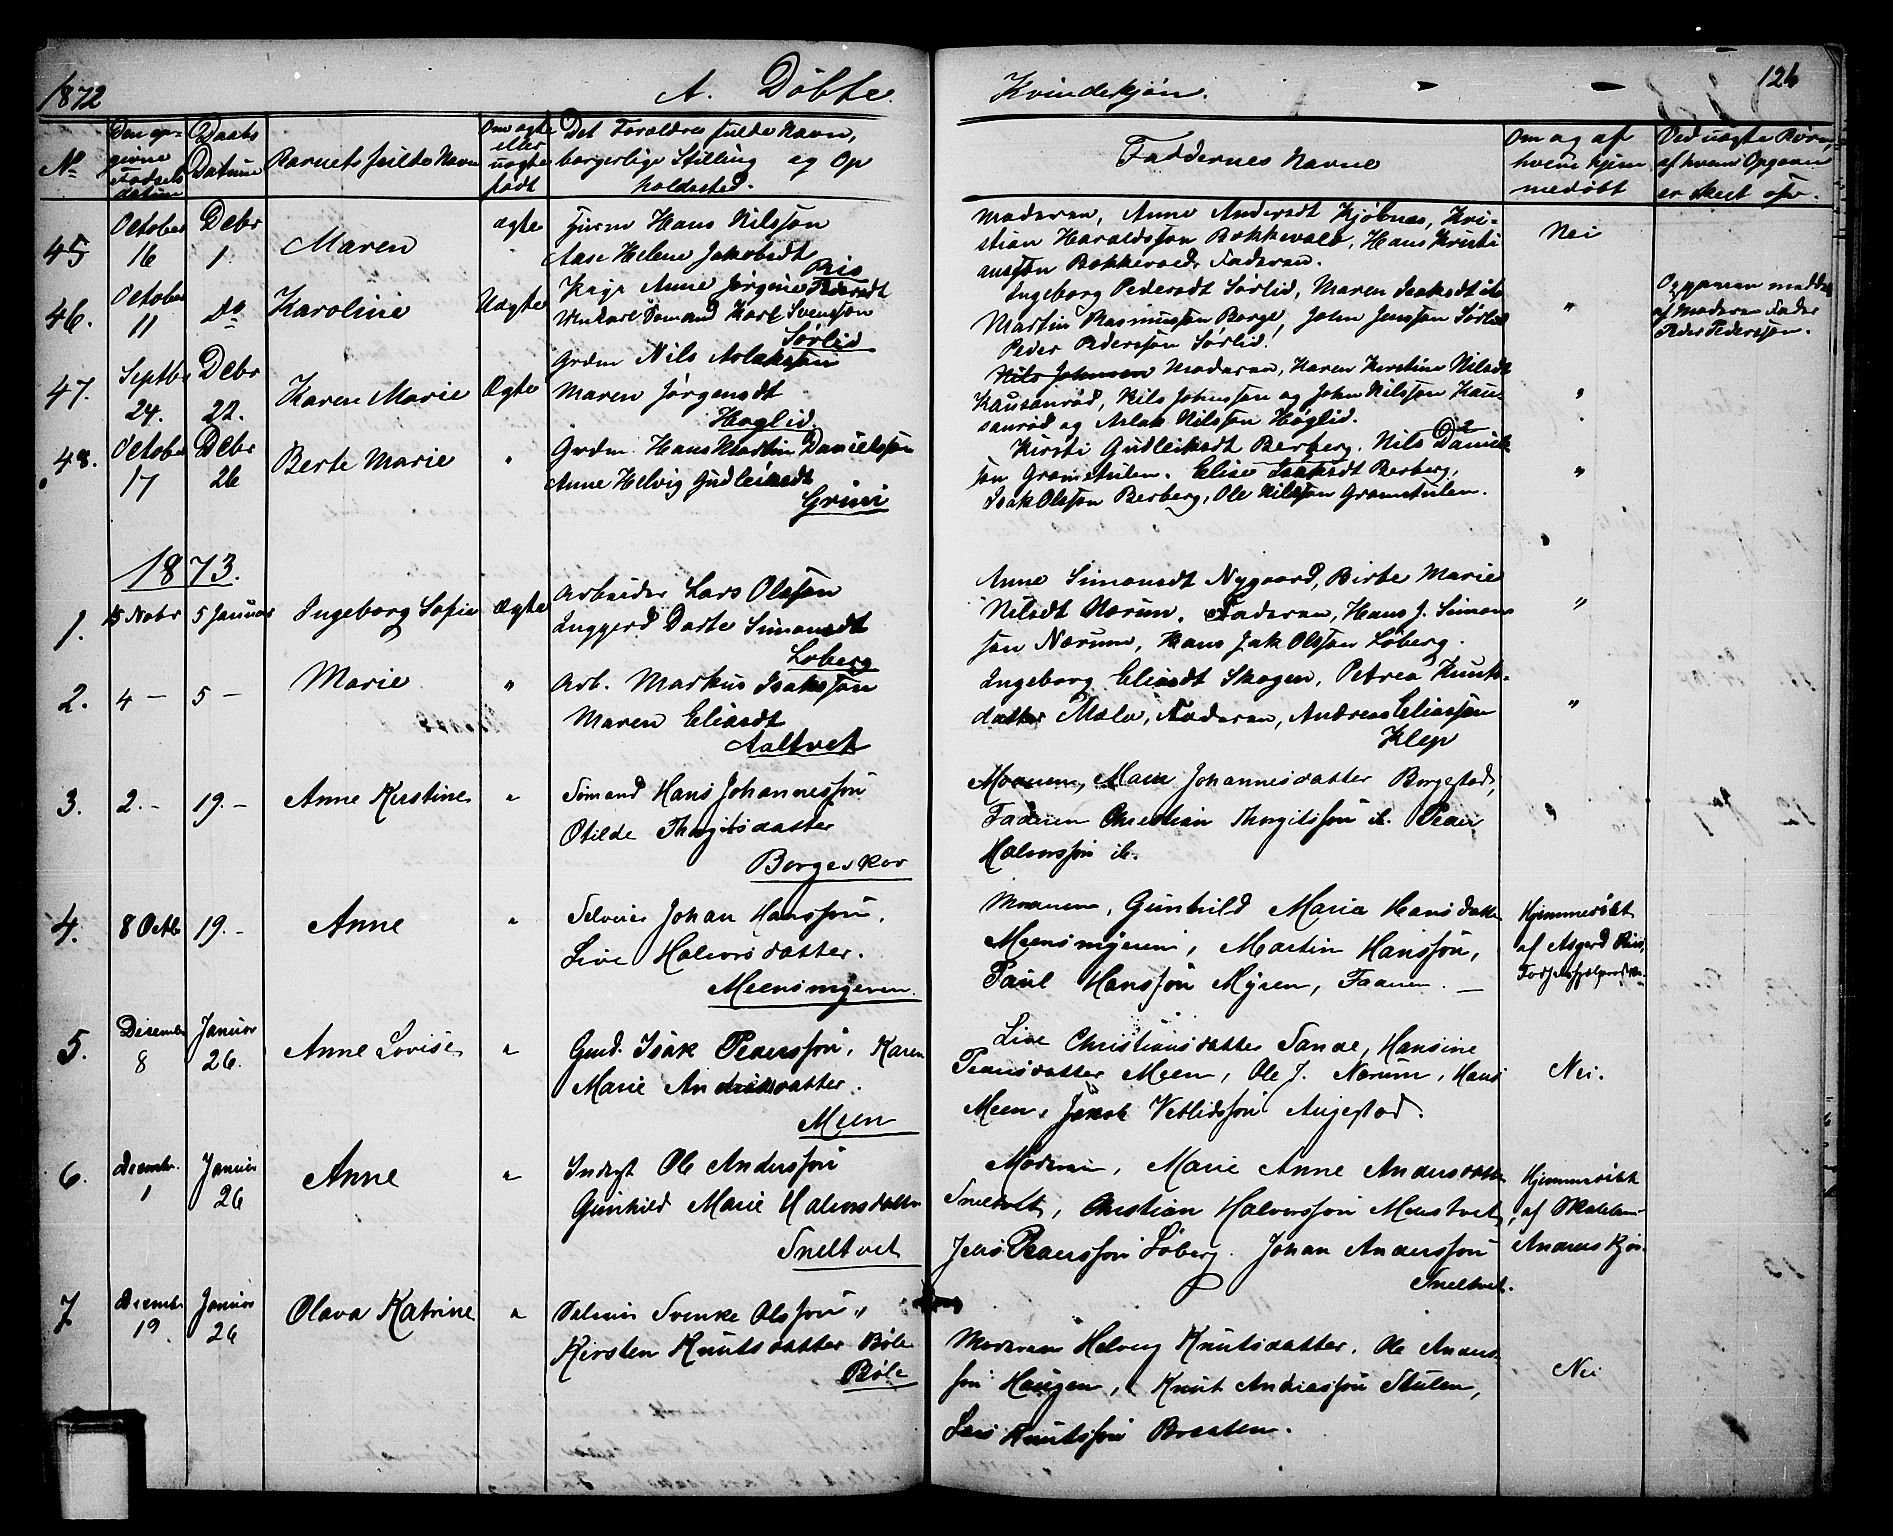 1872
A. Döbte.
Kvindekjön.
126
No
Den op-
givne
Fødsels
datum
Daabs
Datum
Barnets fulde Navn
Om ægte
eller
uægte
født
Det Forældres fulde Navn,
borgerlige Stilling og Op
holdssted.
Faddernes Navne
Om og af
hvem hjem
medöbt
Ved uægte Börn,
af hvem Opgaven
er skeet osv.
45
October
16
Debr
1.
Maren
ægte
Hans Nilssön
Aase Helene Jakobsdt
Ris
Moderen, Anne Andersdt Kjöbnes, Kri-
stian Haraldssön Bokkevold, Hans Kristi
anssön Bokkevold, Faderen.
Nei
46.
October
11
Do
Karoline
Uægte
Anne Jörgine Pedersdt
Karl Svenssön
Sörlid
Ingeborg Pedersdt Sörlid, Maren Isaksdt ib
Martin Rasmussön Borge, John Jenssön Sörlid
Peder Pederssön Sörlid.
"
Opgaven medd
af Moderen Fader
Peder Pederssön.
47.
Septbr
24.
Debr
22.
Karen Marie
Ægte
Grdm Nils Aslakssön
Maren Jörgensdt
Høglid.
Nils Johnsen Moderen, Karen Kirstine Nilsdt
Kausanröd, Nils Johnssön og John Nilssön Kau-
sanröd og Aslak Nilssön Høglid.
"
48.
October
17
Debr
26
Berte Marie
"
Grdm. Hans Martin Danielssön
Anne Helvig Gudleiksdt
Grini
Kirsti Gudleiksdt Berberg, Nils Daniels
sön Grönstulen. Elise Isaksdt Berberg,
Isak Olssön Berberg, Ole Nilssön Grönstulen.
"
1873.
1.
15 Nobr
5 Januar
Ingeborg Sofie
Ægte
Arbeider Lars Olssön
Inggerd Dorte Simonsdt
Loberg
Anne Simonsdt Nygaard, Birte Marie
Nilsdt Nærum, Faderen, Hans J. Simons
sön Nærum, Hans Jak Olssön Löberg.
"
2.
4 –
5 –
Marie
"
Arb. Markus Isakssön
Maren Eliasdt
Aaltvet
Ingeborg Eliasdt Skogen, Petrea Knuts-
datter Mæla, Faderen, Andreas Eliassön
Klep
"
3.
2. –
19. –
Anne Kirstine
"
Sömand Hans Johannessön
Otilde Thorgilsdatter
Borgeskov
Moderen, Maren Johannesdatter Borgestad,
Faderen Christian Thorgilssön ib. Peder
Halvorssön ib.
"
4.
8 Octb
19. –
Anne
"
Selveier Johan Hanssön,
Live Halvorsdatter.
Meensmyren.
Moderen, Gunhild Maria Hansdatter
Meensmyren, Martin Hanssön,
Paul Hanssön Myren, Faderen. –
Hjemmedöbt
af Asgerd Riis,
5.
Decembr
8
Januar
26.
Anne Lovise
"
Gmd. Isak Pederssön, Karen
Marie Andreasdatter.
Meen
Live Christiansdatter Sande, Hansine
Pedersdatter Meen, Ole J. Nærum, Hans
Meen, Jakob Vetlidssön Augestad.
Nei.
6.
Decembr.
1
Januar
26
Anne
"
Inderst Ole Anderssön
Gunhild Marie Halvorsdatter
Sneltvet
Moderen, Marie Anne Andersdatter
Sneltvet, Christian Halvorssön Meustvet,
Jens Pederssön Löberg. Johan Anderssön
Sneltvet.
Hjemmedöbt
af Skolelær
Anders Kjös.
7
Decembr
19.
Januar
26
Olava Katrine
"
Selveier Svenke Olssön "
Kirsten Knutsdatter Böle
Böle
Moderen Helvig Knutsdatter. Ole Anders-
sön Haugen, Knut Andreassön Stulen,
Lars Knutssön Braaten.
Nei